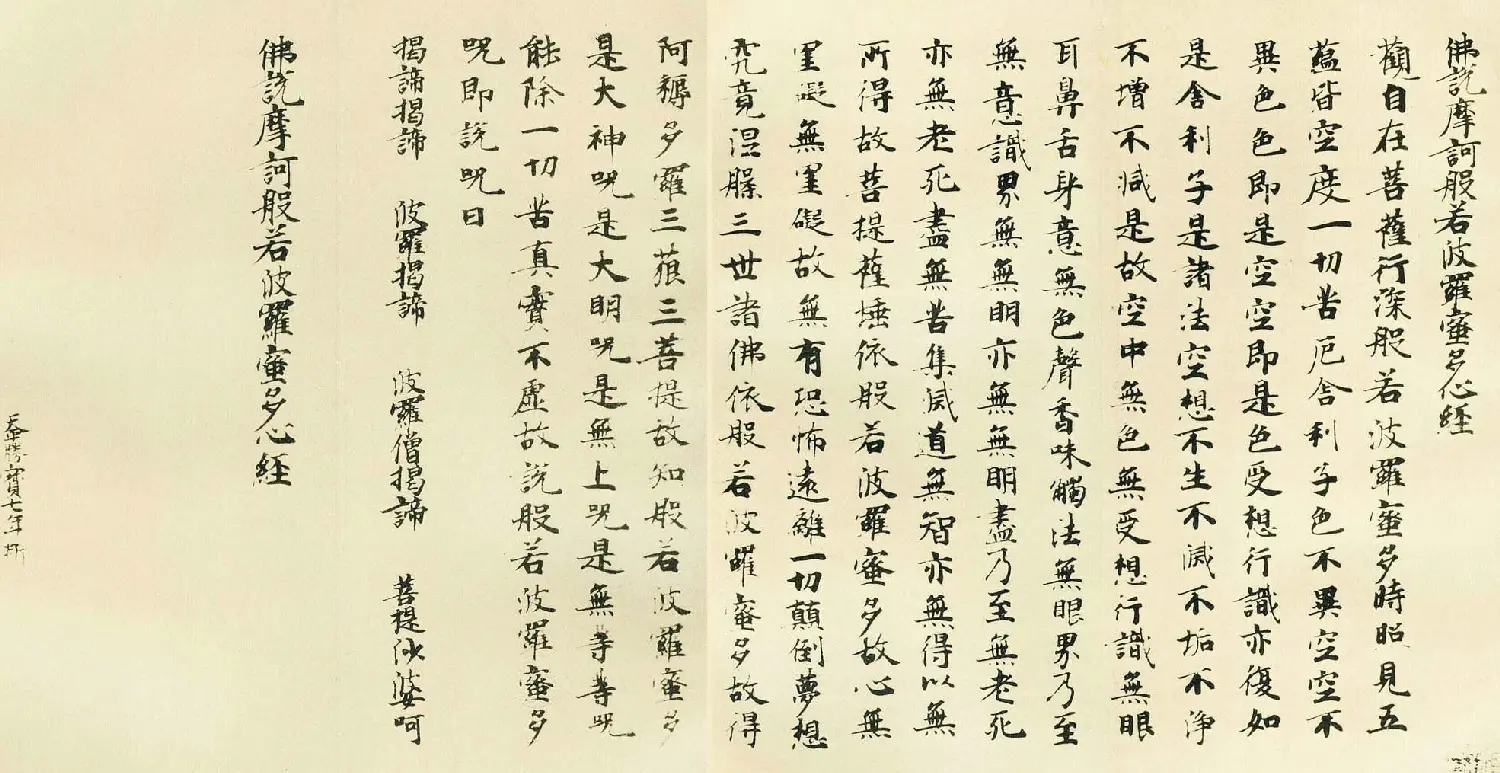 佛説摩訶般若波羅蜜多心経
觀自在菩薩行深般若波羅蜜多時照見五
蘊皆空度一切苦厄舍利子色不異空空不
異色色即是空空即是色受想行識亦復如
是舍利子是諸法空想不生不滅不垢不淨
不增不減是故空中無色無受想行識無眼
耳鼻舌身意無色聲香味觸法無眼界乃至
無意識界無無明亦無無明盡乃至無老死
亦無老死盡無苦集滅道無智亦無得以無
所得故菩提薩埵依般若波羅蜜多故心無
罣礙無罣礙故無有恐怖遠離一切顛倒夢想
究竟涅槃三世諸佛依般若波羅蜜多故得
阿耨多羅三藐三菩提故知般若波羅蜜多
是大神呪是大明呪是無上呪是無等等呪
能除一切苦真實不虛故説般若波羅蜜多
呪即説呪曰
揭諦揭諦 波羅揭諦 波羅僧揭諦 菩提沙婆呵
佛説摩訶般若波羅蜜多心経
天平勝寶七年